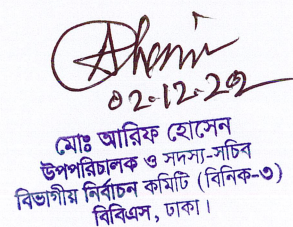 02-12-22
মোঃ আরিফ হোসেন
উপপরিচালক ও সদস্য-সচিব
বিভাগীয় নির্বাচন কমিটি (বিনিক-৩)
বিবিএস, ঢাকা।